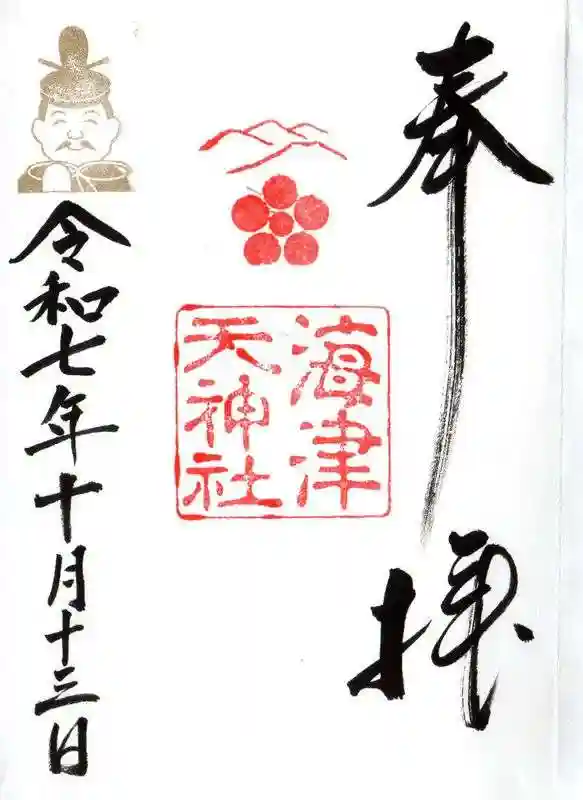 奉拝
海津
天神社
令和七年十月十三日